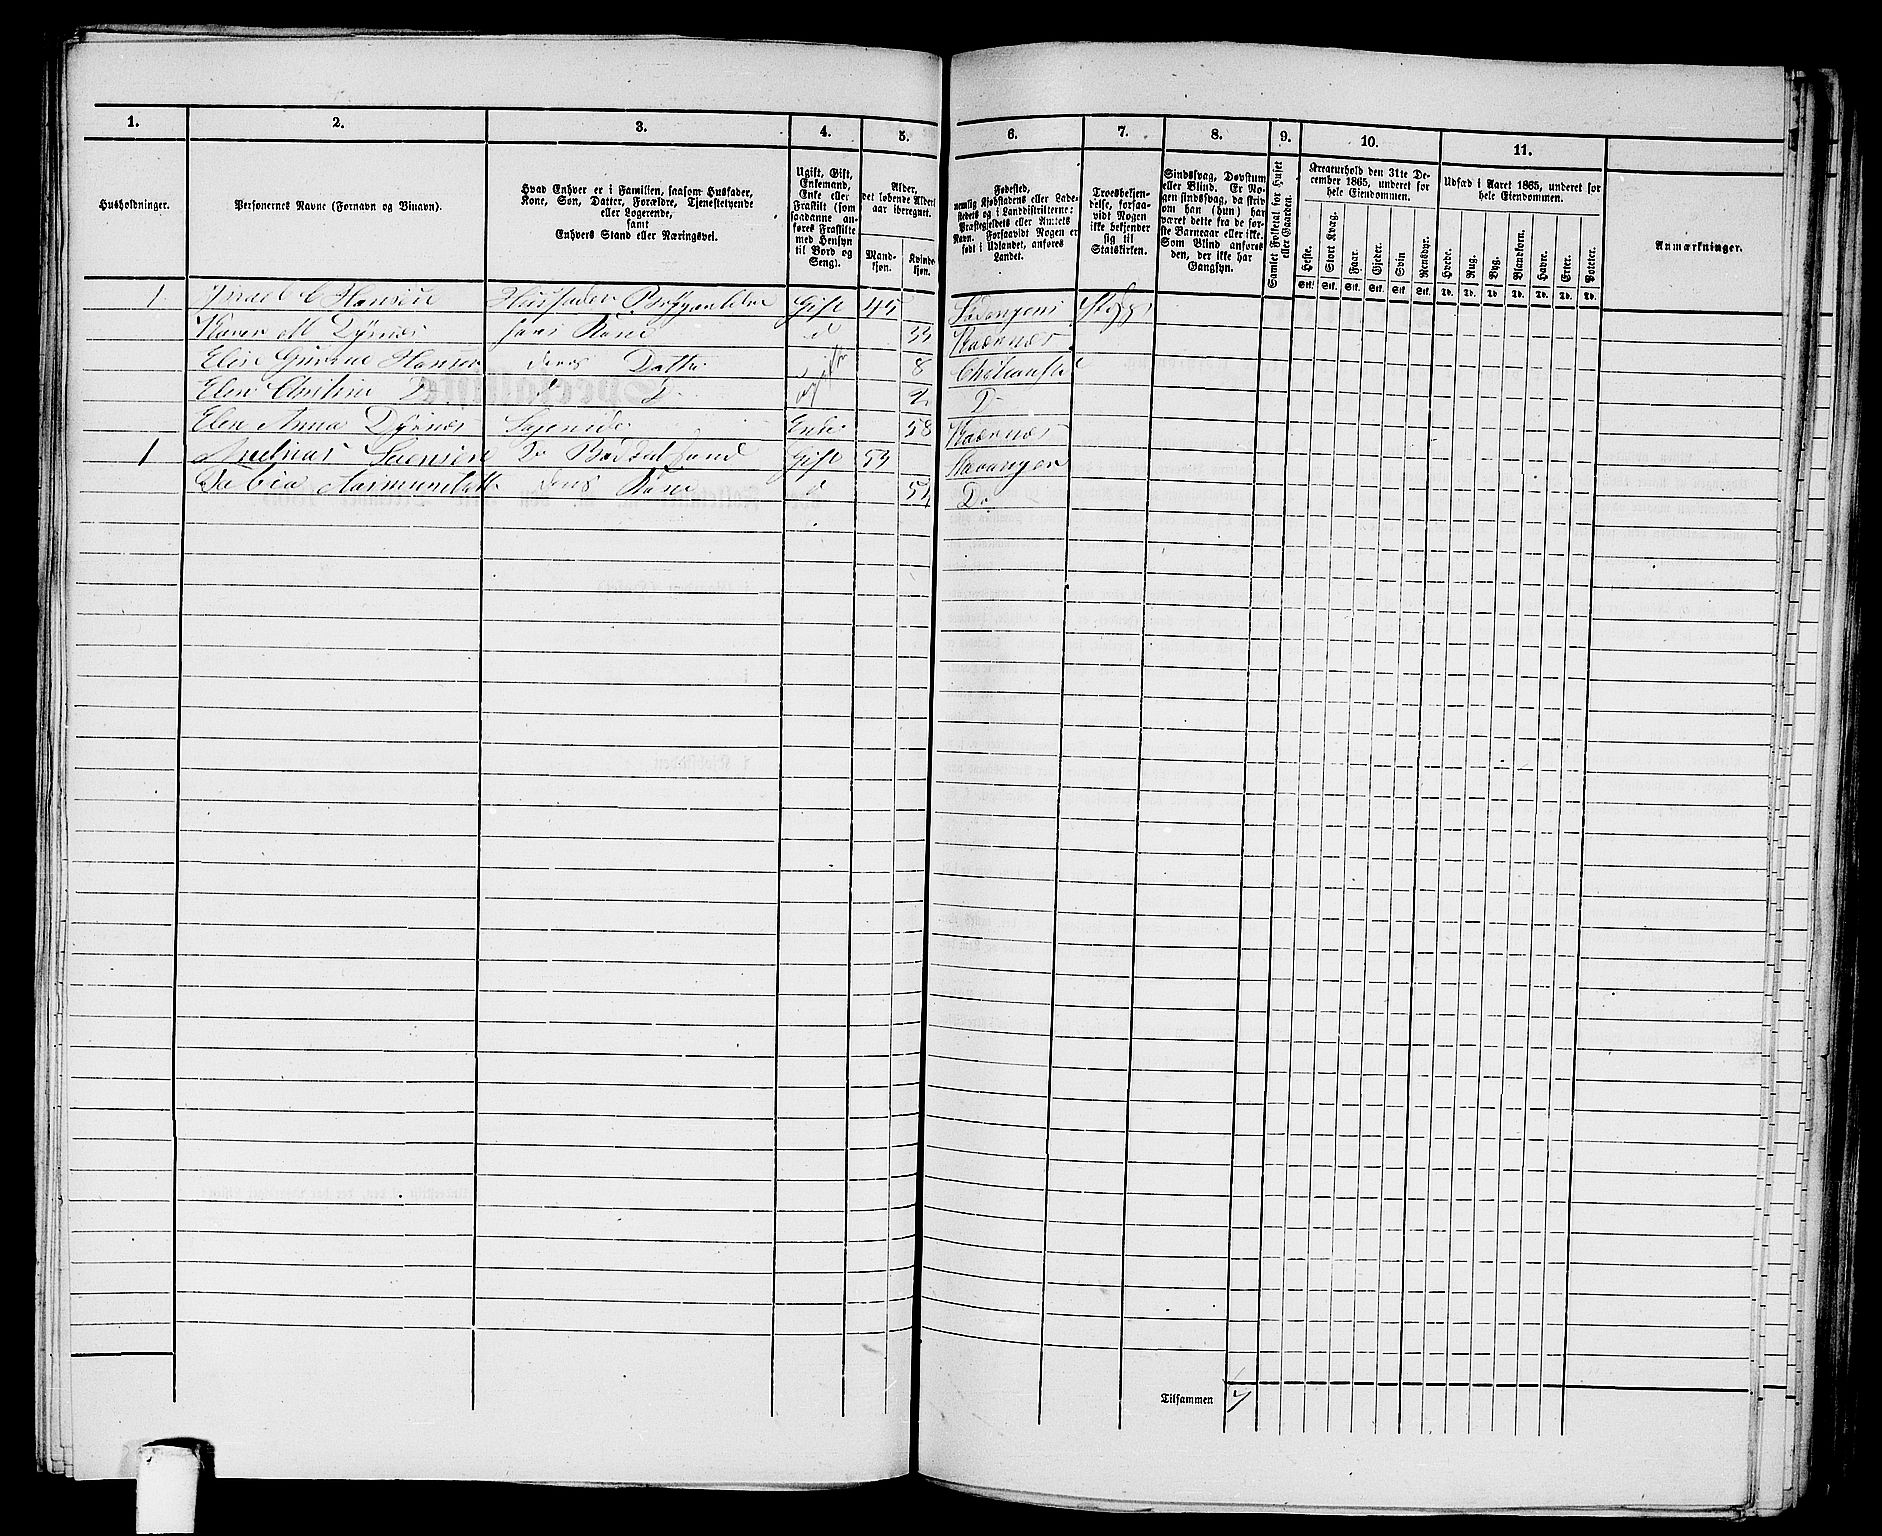 1. 2. 3. 4. 5. 6. 7. 8. 9. 10. 11.
Husholdninger.
Personernes Navne (Fornavn og Tilnavn).
Hvad Enhver er i Familien, saasom Husfader,
Kone, Søn, Datter, Forældre, Tjenestetyende
eller Logerende,
samt
Enhvers Stand eller Næringsvei.
Ugift, Gift,
Enkemand,
Enke eller
Fraskilt (som
saadanne an-
føres Fraskilte
med Hensyn
til Bord og
Seng).
Alder,
det løbende Alders-
aar iberegnet.
Mand-
kjøn.
Kvinde-
kjøn.
Fødested,
nemlig Kjøbstadens eller Lade-
stedets og i Landdistrikterne:
Præstegjeldets eller Amtets
Navn. Forsaavidt Nogen er
født i Udlandet, anføres
Landet.
Troesbekjen-
delse, forsaa-
vidt Nogen
ikke bekjender
sig til
Statskirken.
Sindssvag, Døvstum
eller Blind. Er No-
gen sindssvag, da skriv
om han (hun) har
været dette fra de før-
ste Barneaar eller ikke.
Som Blind anføres
den, der ikke har
Gangsyn.
Samlet Folketal for Huset
eller Gaarden.
Kreaturhold den 31te De-
cember 1865, underet for
hele Eiendommen.
Heste. Stort Kvæg. Faar. Gjeder. Svin Rensdyr.
Stk. Stk. Stk. Stk. Stk. Stk.
Udsæd i Aaret 1865, underet for
hele Eiendommen.
Hvede. Rug. Byg. Blandkorn. Havre. Erter. Poteter.
Td. Td. Td. Td. Td. Td. Td.
Anmærkninger.
1 Hansen Husfader Gift 45
Karen M Dyrnes hans Kone d 33
Hansen deres Datter Ugift 8
Elen D D 2 D
Elen Anna Dyrnes Enke 58
1 Gift 53 Stavanger
deres Kone d 54 Do
Tilsammen 7